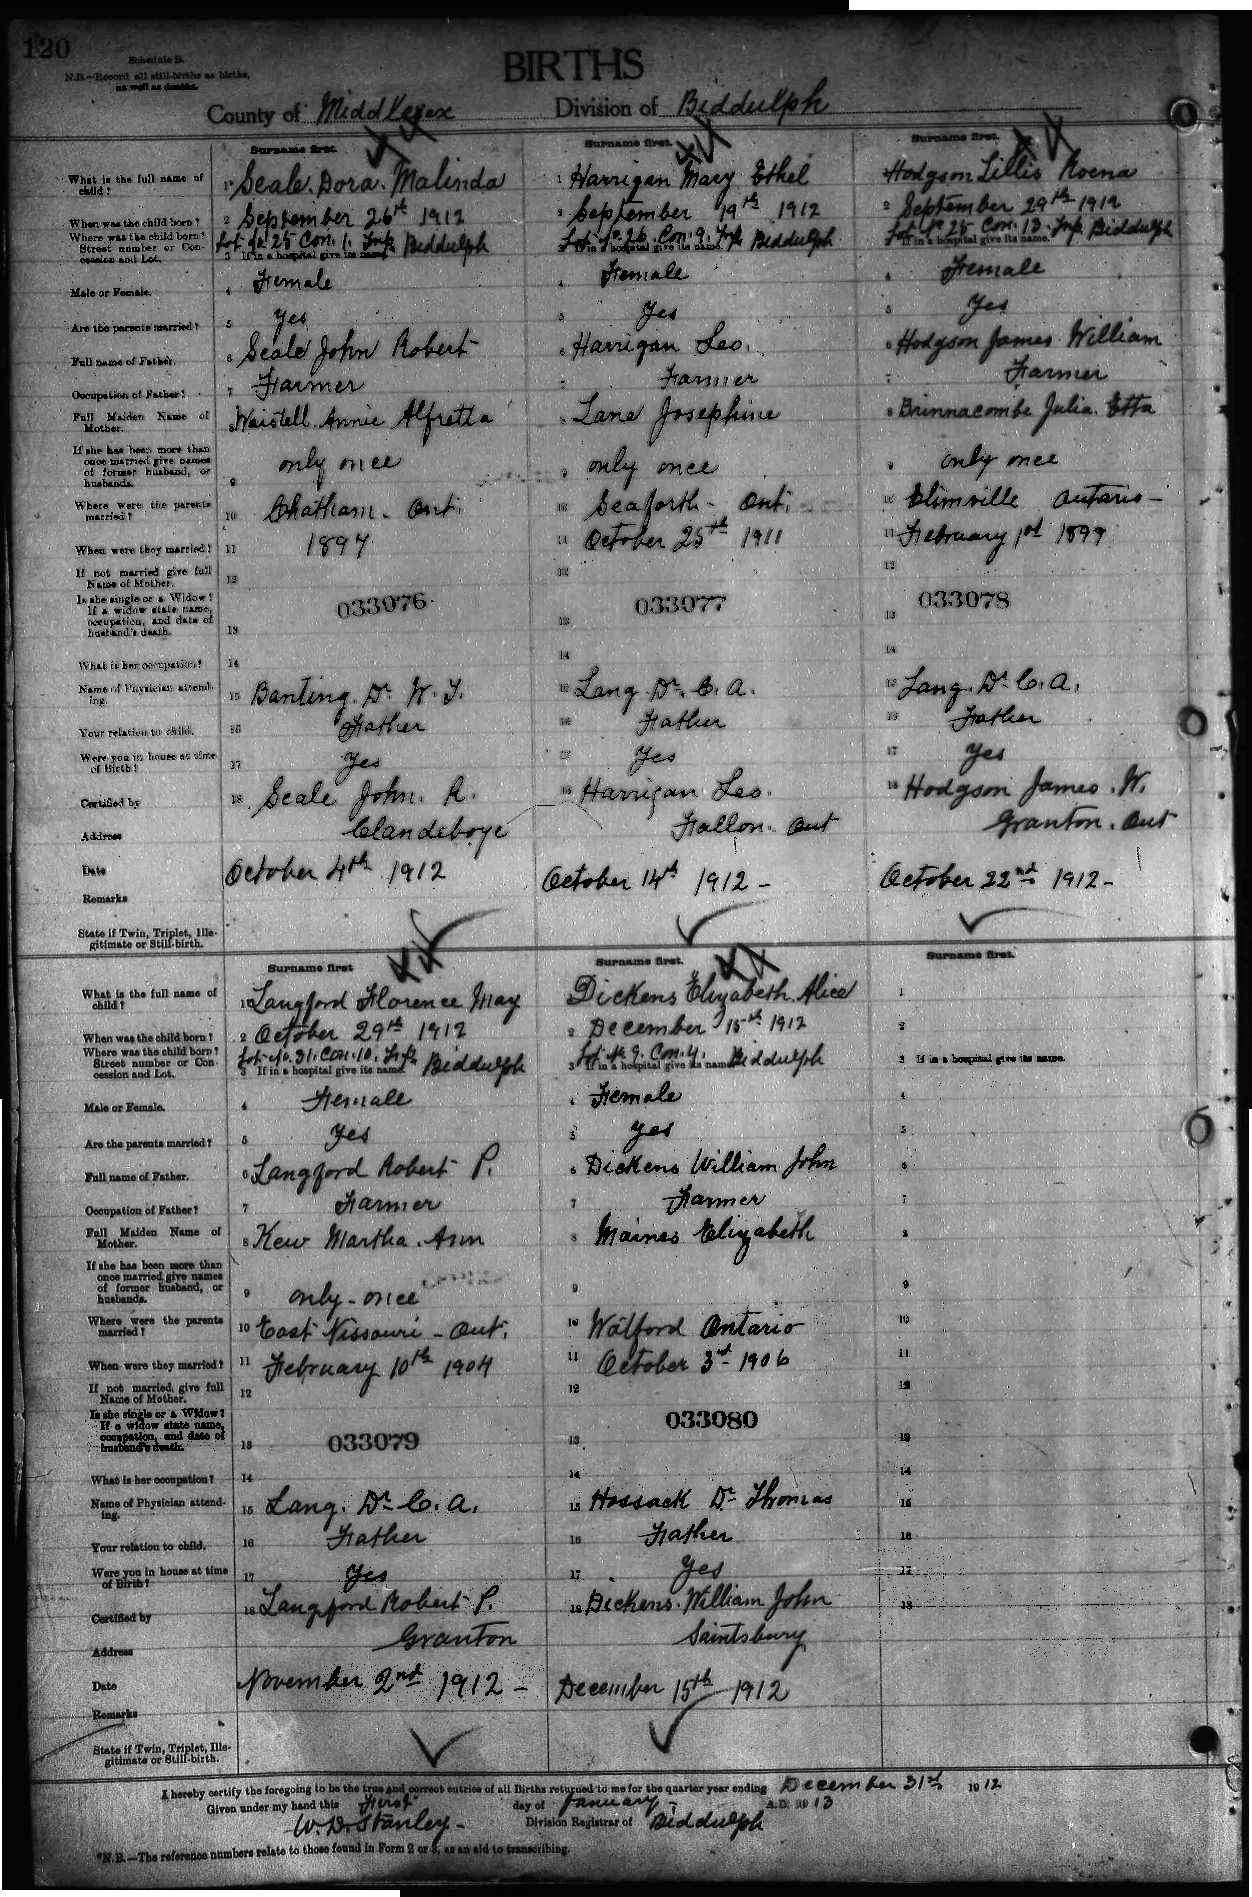 120
Schedule B.
N.B.—Record all still-births as births,
as well as deaths.
BIRTHS
County of Middlesex Division of Biddulph
Surname first. Surname first. Surname first.
What is the full name of child? 1 Seale Dora Malinda 1 Harrigan Mary Ethel Hodgson Lillis Roena
When was the child born? 2 September 26th 1912 2 September 19th 1912 2 September 29th 1912
Where was the child born? Street number or Concession and Lot. 3 If in a hospital give its name Lot No. 25 Con. 1. Tnp. Biddulph If in a hospital give its name Lot No. 26. Con. 9. Tnp. Biddulph If in a hospital give its name. Lot No. 25 Con. 13. Tnp. Biddulph
Male or Female. 4 Female 4 Female 4 Female
Are the parents married? 5 yes 5 Yes 5 Yes
Full name of Father. 6 Seale John Robert 6 Harrigan Leo. 6 Hodgson James William
Occupation of Father? 7 Farmer 7 Farmer 7 Farmer
Full Maiden Name of Mother. 8 Waistell Annie Alfretta 8 Lane Josephine 8 Brinnacombe Julia Etta
If she has been more than once married give names of former husband, or husbands. 9 only once 9 only once 9 only once
Where were the parents married? 10 Chatham - Ont. 10 Seaforth - Ont. 10 Elimville Ontario -
When were they married? 11 1897 11 October 25th 1911 11 February 1st 1899
If not married give full Name of Mother. 12 12 12
Is she single or a Widow? If a widow state name, occupation, and date of husband's death. 13 033076 13 033077 13 033078
What is her occupation? 14 14 14
Name of Physician attending. 15 Banting. Dr. W. T. 15 Lang Dr. C. A. 15 Lang. Dr. C. A.
Your relation to child. 16 Father 16 Father 16 Father
Were you in house at time of Birth? 17 Yes 17 Yes 17 Yes
Certified by 18 Seale John. R. 18 Harrigan Leo. 18 Hodgson James. W.
Address Clandeboye Fallon. Ont Granton. Ont
Date October 4th 1912 October 14th 1912 - October 22nd 1912 -
Remarks
State if Twin, Triplet, Illegitimate or Still-birth.
Surname first Surname first. Surname first.
What is the full name of child? 1 Langford Florence May Dickens Elizabeth Alice 1
When was the child born? 2 October 29th 1912 2 December 15th 1912 2
Where was the child born? Street number or Concession and Lot. 3 If in a hospital give its name Lot No. 31. Con. 10. Tnp. Biddulph 3 If in a hospital give its name Lot No. 9. Con. 4. Biddulph 3 If in a hospital give its name.
Male or Female. 4 Female 4 Female 4
Are the parents married? 5 Yes 5 yes 5
Full name of Father. 6 Langford Robert P. 6 Dickens William John 6
Occupation of Father? 7 Farmer 7 Farmer 7
Full Maiden Name of Mother. 8 Kew Martha. Ann 8 Maines Elizabeth 8
If she has been more than once married give names of former husband, or husbands. 9 only - once 9 9
Where were the parents married? 10 East Nissouri - Ont. 10 Walford Ontario 10
When were they married? 11 February 10th 1904 11 October 3rd 1906 11
If not married, give full Name of Mother. 12 12 12
Is she single or a Widow? If a widow state name, occupation, and date of husband's death. 13 033079 13 033080 13
What is her occupation? 14 14 14
Name of Physician attending. 15 Lang. Dr. C. A. 15 Hossack Dr. Thomas 15
Your relation to child. 16 Father 16 Father 16
Were you in house at time of Birth? 17 Yes 17 yes 17
Certified by 18 Langford Robert P. 18 Dickens. William John 18
Address Granton Saintsbury
Date November 2nd 1912 - December 15th 1912
Remarks
State if Twin, Triplet, Illegitimate or Still-birth.
I hereby certify the foregoing to be the true and correct entries of all Births returned to me for the quarter year ending December 31st 1912
Given under my hand this First day of January - A.D. 1913
W. D. Stanley - Division Registrar of Biddulph
*N.B.—The reference numbers relate to those found in Form 2 or 3, as an aid to transcribing.